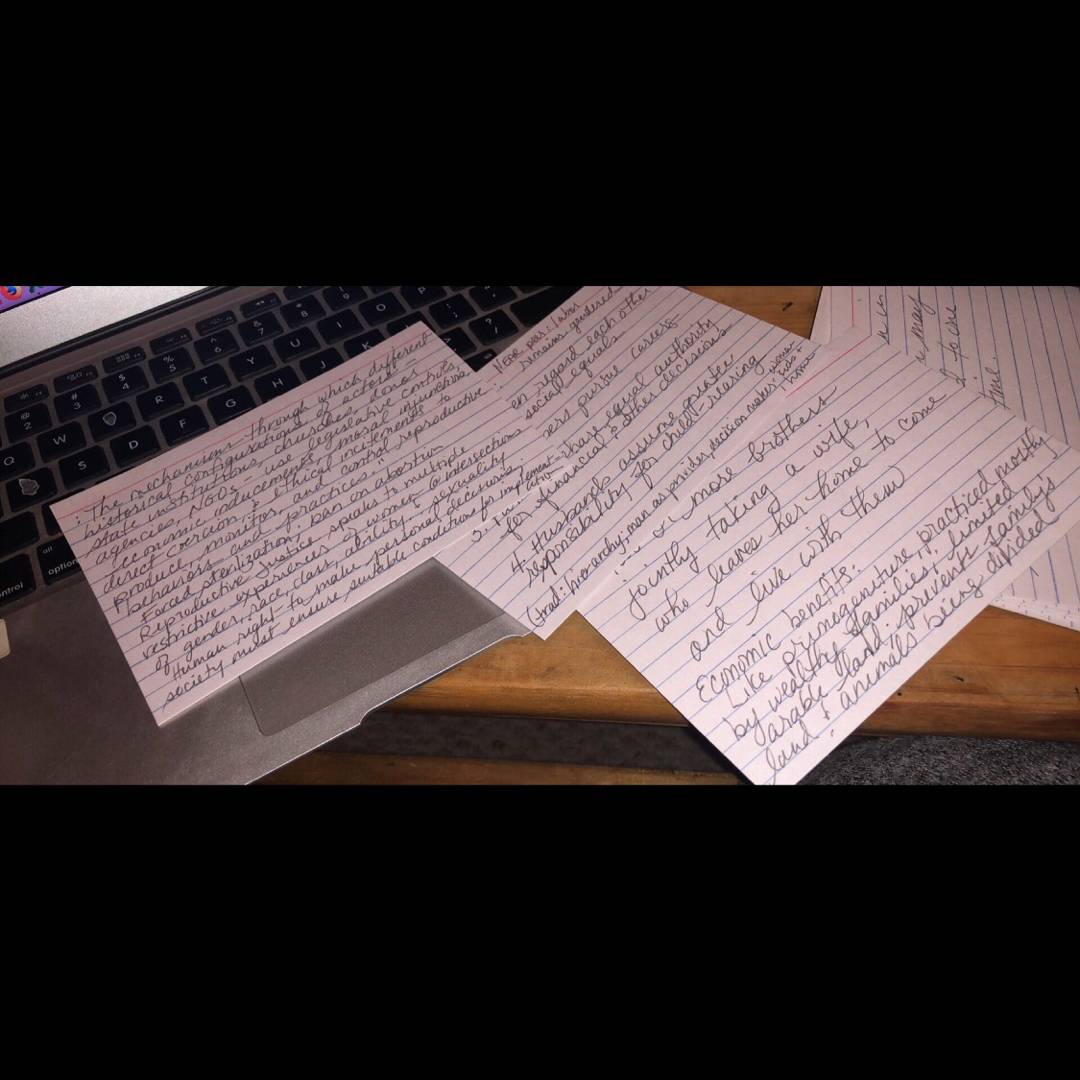 : The mechanisms through which different
historical configurations of actors -
state institutions, churches, donor
agencies, NGOs - use legislative controls,
economic inducements, moral injunctions,
direct coercion, & ethical incitements to
produce, monitor, and control reproductive
behaviors and practices...
Forced sterilization, ban on abortion
Reproductive Justice speaks to multiple
restrictive experiences of women @ intersections
of gender, race, class, ability & sexuality
Human right to make personal decisions;
society must ensure suitable conditions for implement-
atio
remains gendered
en regard each other
social equals
ners pursue careers
share equal authority
for financial & other decisions
4. Husbands assume greater
responsibility for child-rearing
Grad: hierarchy; man as provider, decision maker;
more brothers
jointly taking a wife,
who leaves her home to come
and live with them
Economic benefits:
Like primogeniture, practiced mostly
by wealthy families, limited
arable land; prevents family's
land & animals being divided
may
time
Q
W
R
T
Y
U
I
O
P
S
D
F
G
H
J
K
2
3
4
5
6
7
8
9
option